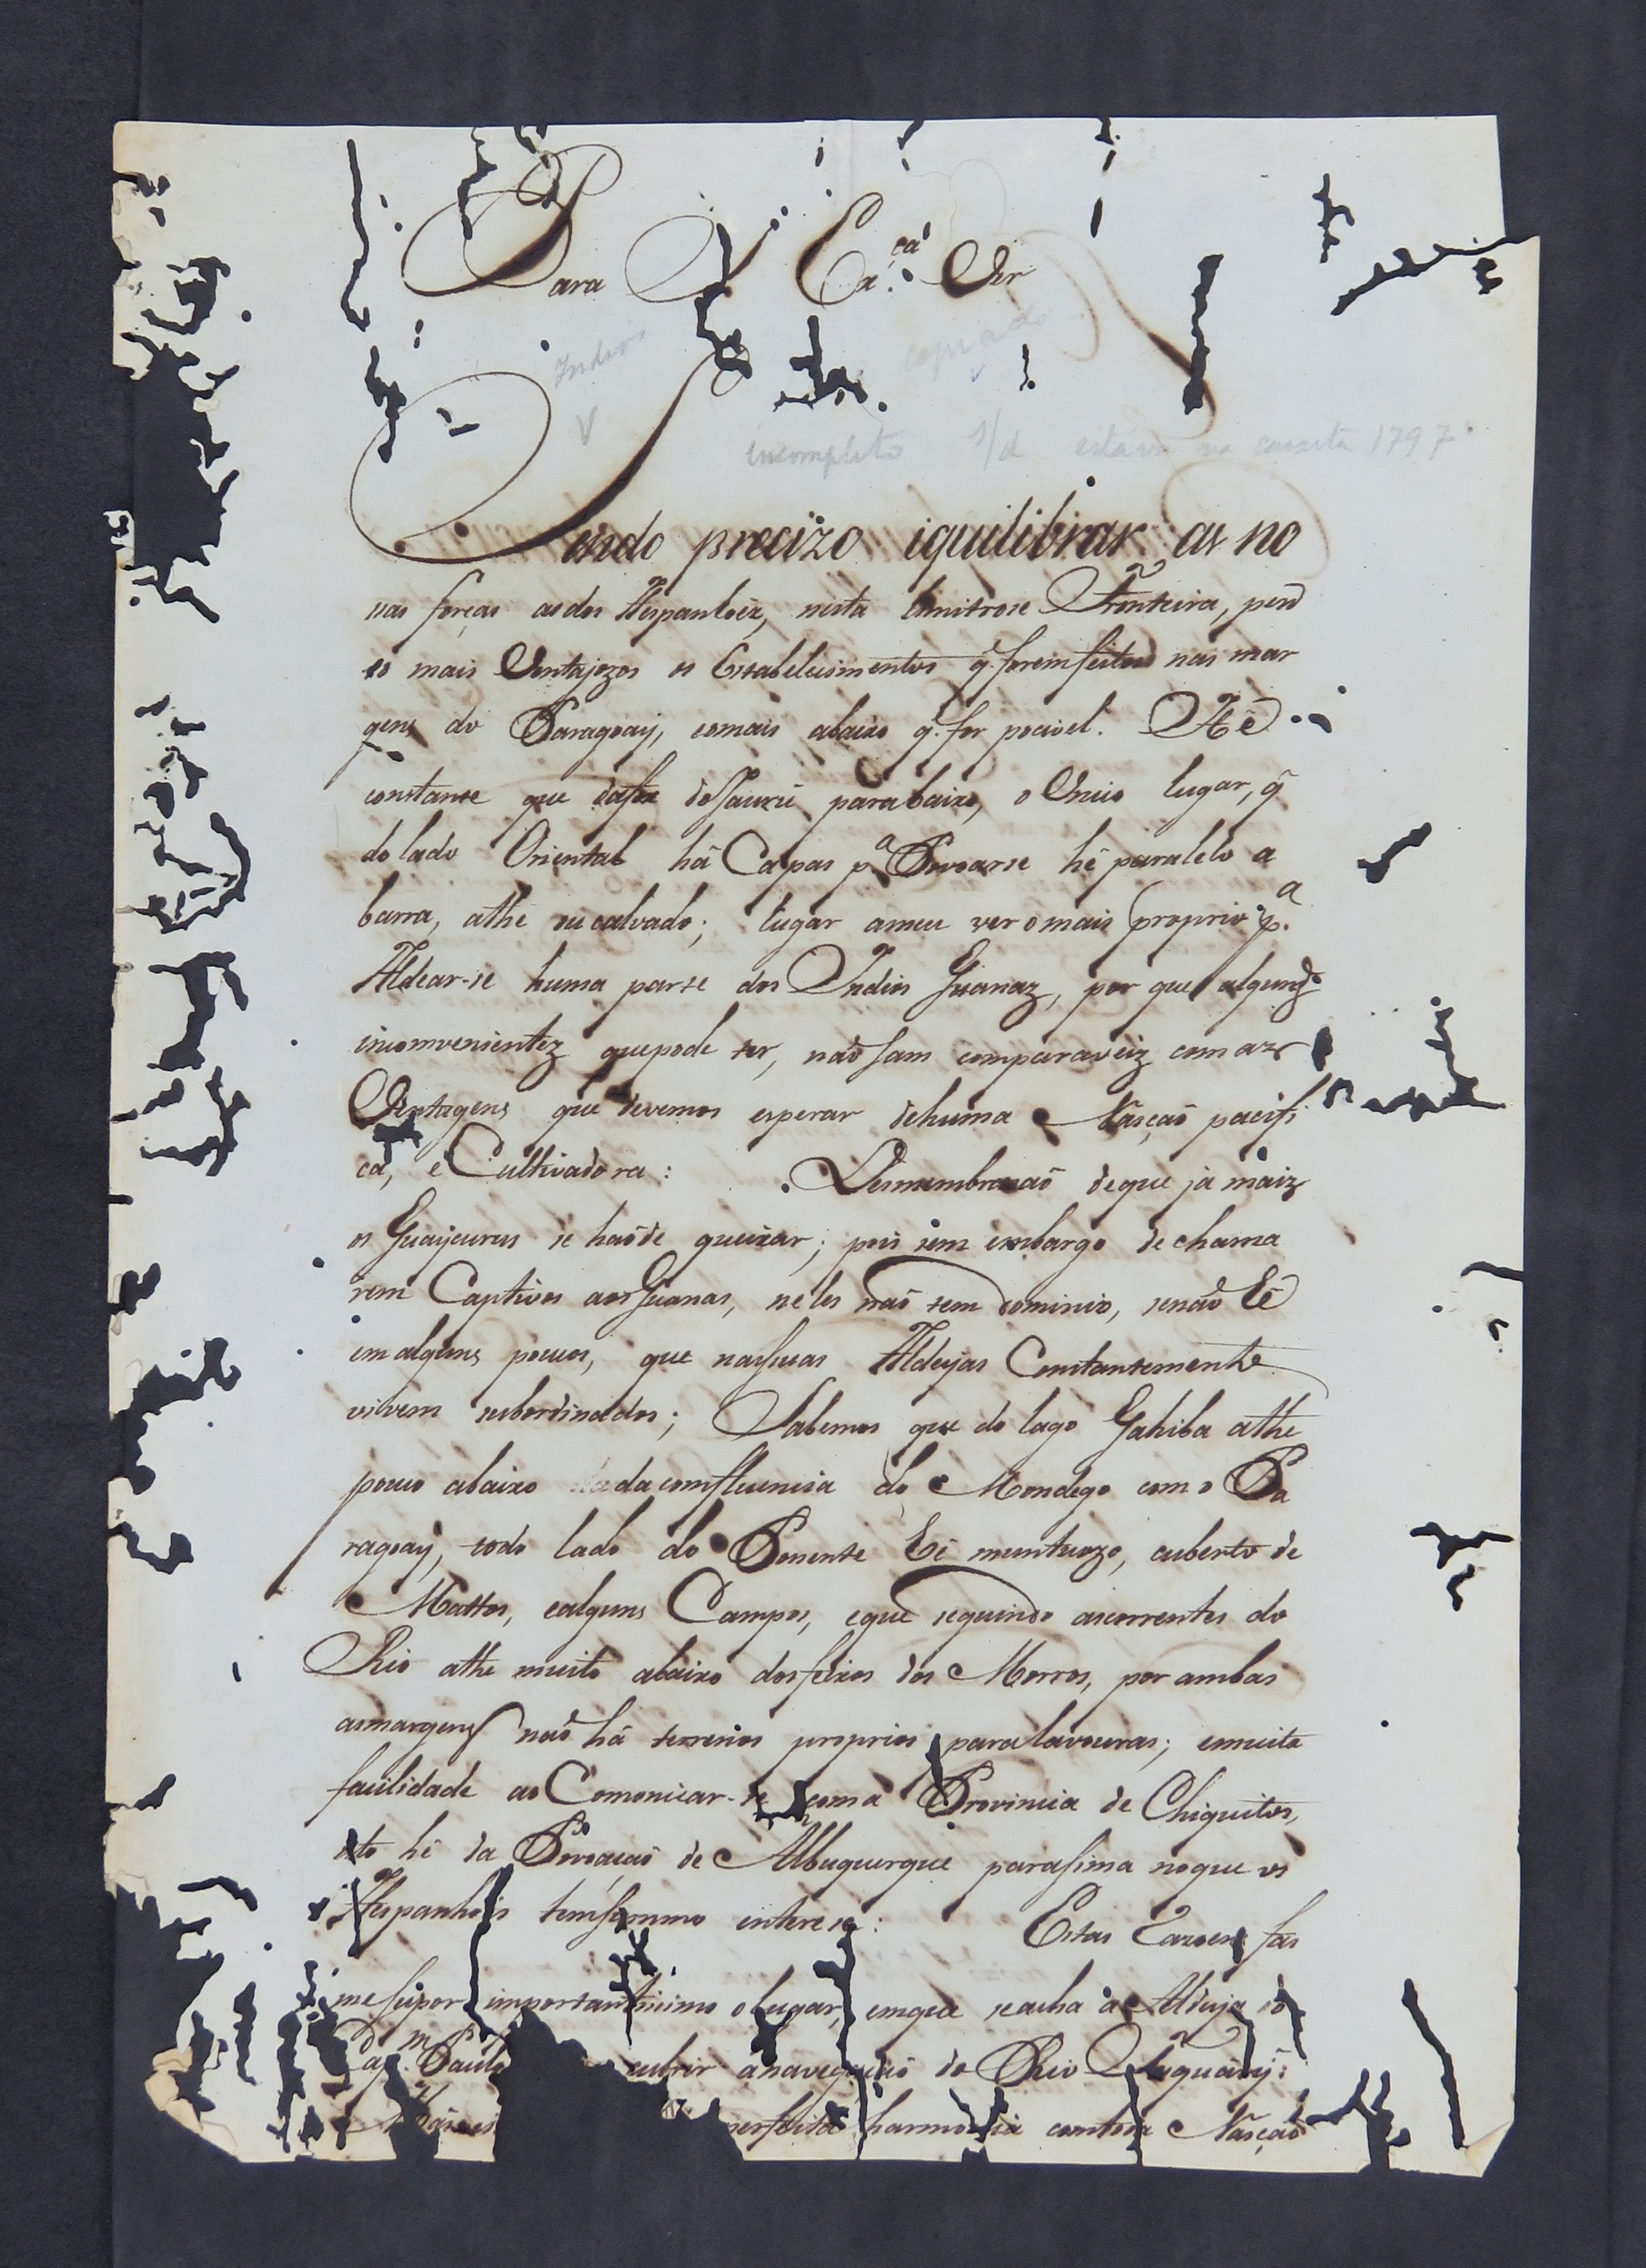 Para S Ex.ca Ver
Indios
copiado
incompleto s/d estava na caixeta 1797
Sendo precizo iquilibrar as no
sas forças as dos Hespanhoez, nesta limitrose Fronteira, serão
os mais Ventajozos os Estabelecimentos q̃ forem feitos nas mar
gens do Paragoay, e o mais abaixo q̃ for pocivel. Hê
constante que da foz do Jaurú para baixo, o Unico lugar, q̃
do lado Oriental há Capas p.a Povoarse hé paralelo a
barra, athe seu calvado; lugar a meu ver o mais proprio p.a
Aldear-se huma parte dos Indios Guanaz, por que alguns
incomvenientez que pode ter, naõ sam comparaveiz com az
Ventagens que devemos esperar de huma Nasçaõ pacifi
ca, e Cultivadora: Desmembraçaõ de que já maiz
os Guaycurus se haõ de queixar; pois sem embargo de chama
rem Captivos aos Guanas, neles naõ tem dominio, senaõ hé
em alguns poucos, que nas suas Aldeyas Constantemente
vivem subordinados; Sabemos que do lago Gahiba athe
pouco abaixo da comfluencia do Mondego com o Pa
ragoay, todo lado do Ponente hé muntuozo, cuberto de
Mattos, e alguns Campos, e que seguindo as correntes do
Rio athe muito abaixo dos feixos dos Morros, por ambas
as margens naõ há terrenos proprios para lavouras; e muita
facilidade ao Comonicar-se com a Provincia de Chiquitos,
isto hé da Povoaçaõ de Albuquerque para sima no que os
Hespanhois tem summo interese: Estas Razoens fas
me supor importantisimo o lugar, em que se acha a Aldeya do
Cap.m Paulo cubrir a navegaçaõ do Rio Taquary:
perfeita harmonia com toda Nasçaõ